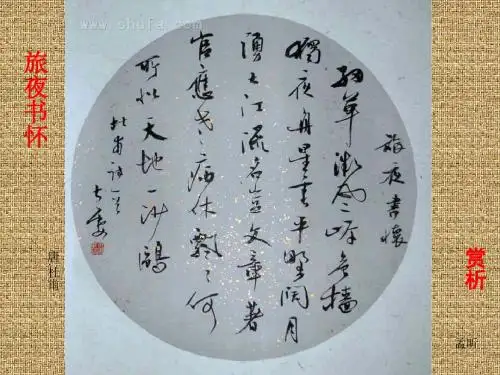 旅夜书怀
唐杜甫
赏析
孟昕
www.shufa.com
旅夜書懷
細草微風岸危檣
獨夜舟星垂平野闊月
湧大江流名豈文章著
官應老〻病休飄〻何
所似天地一沙鷗
杜甫詩一首